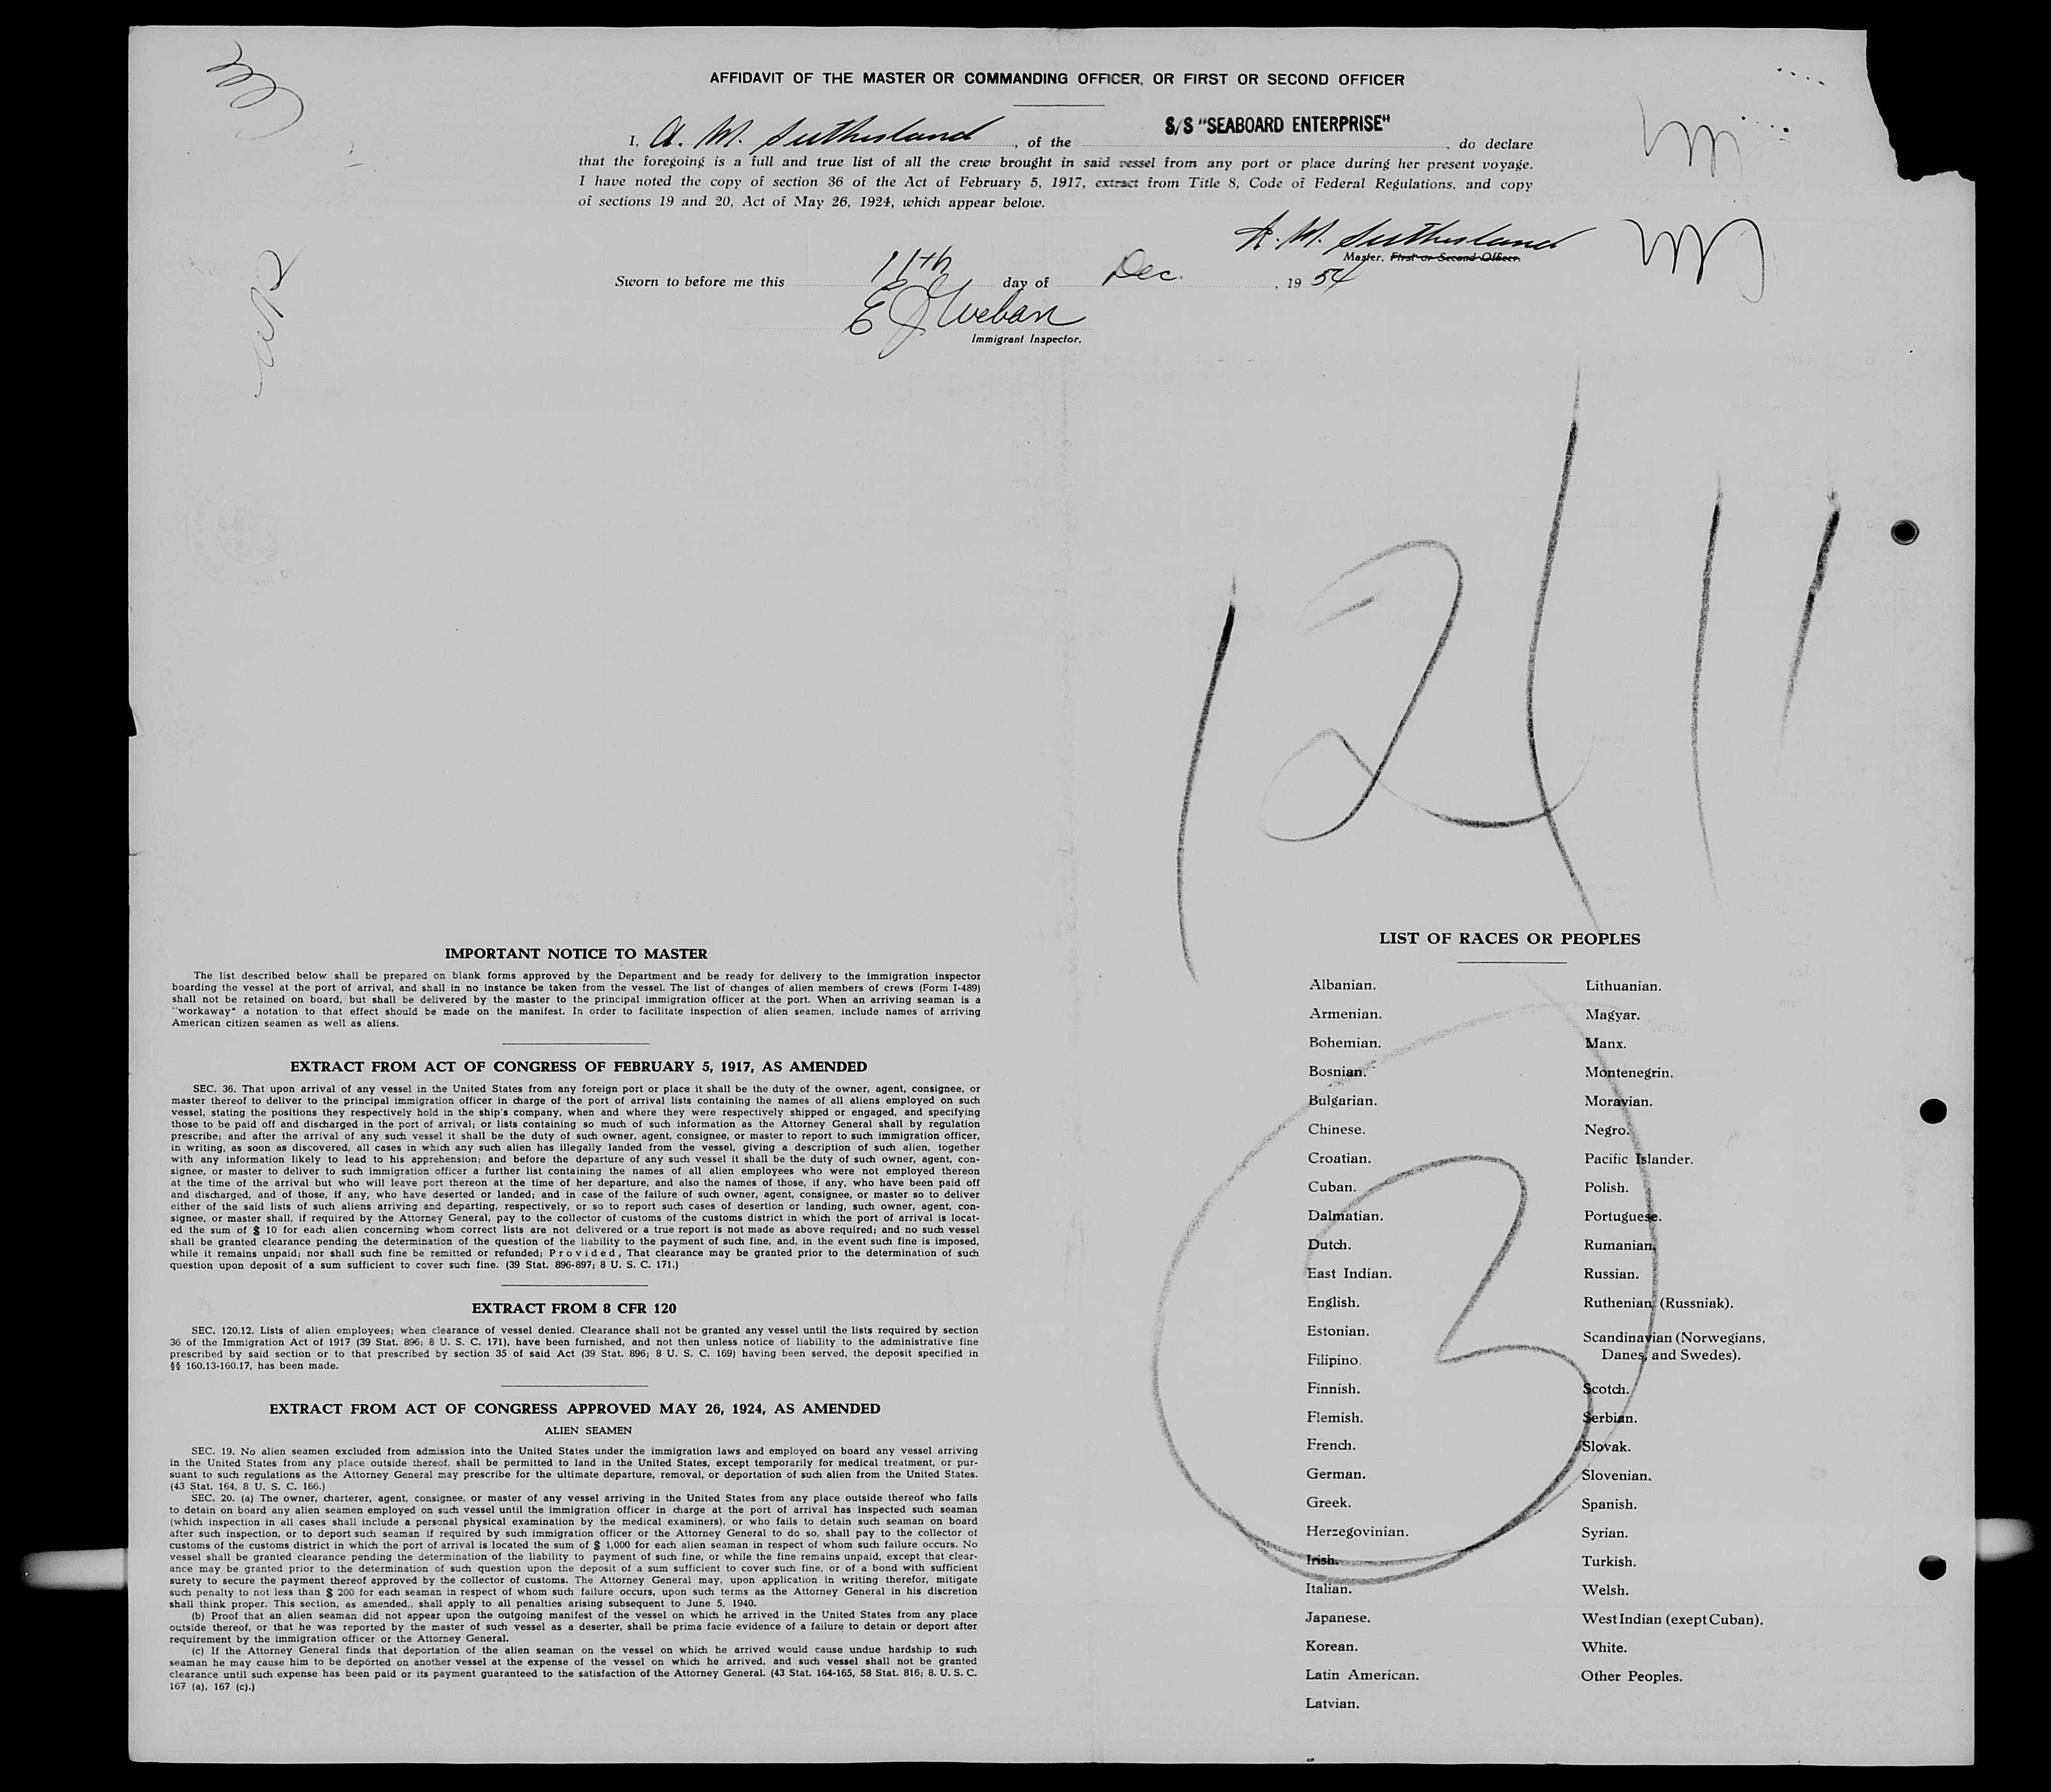 AFFIDAVIT OF THE MASTER OR COMMANDING OFFICER, OR FIRST OR SECOND OFFICER
I, A. M. Sutherland, of the S/S "SEABOARD ENTERPRISE", do declare
that the foregoing is a full and true list of all the crew brought in said vessel from any port or place during her present voyage.
I have noted the copy of section 36 of the Act of February 5, 1917, extract from Title 8, Code of Federal Regulations, and copy
of sections 19 and 20, Act of May 26, 1924, which appear below.
A. M. Sutherland
Master, First or Second Officer.
Sworn to before me this 11th day of Dec. , 19 54
Immigrant Inspector.
12/11
3
IMPORTANT NOTICE TO MASTER
The list described below shall be prepared on blank forms approved by the Department and be ready for delivery to the immigration inspector
boarding the vessel at the port of arrival, and shall in no instance be taken from the vessel. The list of changes of alien members of crews (Form I-489)
shall not be retained on board, but shall be delivered by the master to the principal immigration officer at the port. When an arriving seaman is a
"workaway" a notation to that effect should be made on the manifest. In order to facilitate inspection of alien seamen, include names of arriving
American citizen seamen as well as aliens.
EXTRACT FROM ACT OF CONGRESS OF FEBRUARY 5, 1917, AS AMENDED
SEC. 36. That upon arrival of any vessel in the United States from any foreign port or place it shall be the duty of the owner, agent, consignee, or
master thereof to deliver to the principal immigration officer in charge of the port of arrival lists containing the names of all aliens employed on such
vessel, stating the positions they respectively hold in the ship's company, when and where they were respectively shipped or engaged, and specifying
those to be paid off and discharged in the port of arrival; or lists containing so much of such information as the Attorney General shall by regulation
prescribe; and after the arrival of any such vessel it shall be the duty of such owner, agent, consignee, or master to report to such immigration officer,
in writing, as soon as discovered, all cases in which any such alien has illegally landed from the vessel, giving a description of such alien, together
with any information likely to lead to his apprehension; and before the departure of any such vessel it shall be the duty of such owner, agent, con-
signee, or master to deliver to such immigration officer a further list containing the names of all alien employees who were not employed thereon
at the time of the arrival but who will leave port thereon at the time of her departure, and also the names of those, if any, who have been paid off
and discharged, and of those, if any, who have deserted or landed; and in case of the failure of such owner, agent, consignee, or master so to deliver
either of the said lists of such aliens arriving and departing, respectively, or so to report such cases of desertion or landing, such owner, agent, con-
signee, or master shall, if required by the Attorney General, pay to the collector of customs of the customs district in which the port of arrival is locat-
ed the sum of $ 10 for each alien concerning whom correct lists are not delivered or a true report is not made as above required; and no such vessel
shall be granted clearance pending the determination of the question of the liability to the payment of such fine, and, in the event such fine is imposed,
while it remains unpaid; nor shall such fine be remitted or refunded; Provided, That clearance may be granted prior to the determination of such
question upon deposit of a sum sufficient to cover such fine. (39 Stat. 896-897; 8 U. S. C. 171.)
EXTRACT FROM 8 CFR 120
SEC. 120.12. Lists of alien employees; when clearance of vessel denied. Clearance shall not be granted any vessel until the lists required by section
36 of the Immigration Act of 1917 (39 Stat. 896; 8 U. S. C. 171), have been furnished, and not then unless notice of liability to the administrative fine
prescribed by said section or to that prescribed by section 35 of said Act (39 Stat. 896; 8 U. S. C. 169) having been served, the deposit specified in
§§ 160.13-160.17, has been made.
EXTRACT FROM ACT OF CONGRESS APPROVED MAY 26, 1924, AS AMENDED
ALIEN SEAMEN
SEC. 19. No alien seamen excluded from admission into the United States under the immigration laws and employed on board any vessel arriving
in the United States from any place outside thereof, shall be permitted to land in the United States, except temporarily for medical treatment, or pur-
suant to such regulations as the Attorney General may prescribe for the ultimate departure, removal, or deportation of such alien from the United States.
(43 Stat. 164, 8 U. S. C. 166.)
SEC. 20. (a) The owner, charterer, agent, consignee, or master of any vessel arriving in the United States from any place outside thereof who fails
to detain on board any alien seamen employed on such vessel until the immigration officer in charge at the port of arrival has inspected such seaman
(which inspection in all cases shall include a personal physical examination by the medical examiners), or who fails to detain such seaman on board
after such inspection, or to deport such seaman if required by such immigration officer or the Attorney General to do so, shall pay to the collector of
customs of the customs district in which the port of arrival is located the sum of $ 1,000 for each alien seaman in respect of whom such failure occurs. No
vessel shall be granted clearance pending the determination of the liability to payment of such fine, or while the fine remains unpaid, except that clear-
ance may be granted prior to the determination of such question upon the deposit of a sum sufficient to cover such fine, or of a bond with sufficient
surety to secure the payment thereof approved by the collector of customs. The Attorney General may, upon application in writing therefor, mitigate
such penalty to not less than $ 200 for each seaman in respect of whom such failure occurs, upon such terms as the Attorney General in his discretion
shall think proper. This section, as amended,, shall apply to all penalties arising subsequent to June 5, 1940.
(b) Proof that an alien seaman did not appear upon the outgoing manifest of the vessel on which he arrived in the United States from any place
outside thereof, or that he was reported by the master of such vessel as a deserter, shall be prima facie evidence of a failure to detain or deport after
requirement by the immigration officer or the Attorney General.
(c) If the Attorney General finds that deportation of the alien seaman on the vessel on which he arrived would cause undue hardship to such
seaman he may cause him to be deported on another vessel at the expense of the vessel on which he arrived, and such vessel shall not be granted
clearance until such expense has been paid or its payment guaranteed to the satisfaction of the Attorney General. (43 Stat. 164-165, 58 Stat. 816; 8. U. S. C.
167 (a), 167 (c).)
LIST OF RACES OR PEOPLES
Albanian.
Armenian.
Bohemian.
Bosnian.
Bulgarian.
Chinese.
Croatian.
Cuban.
Dalmatian.
Dutch.
East Indian.
English.
Estonian.
Filipino.
Finnish.
Flemish.
French.
German.
Greek.
Herzegovinian.
Irish.
Italian.
Japanese.
Korean.
Latin American.
Latvian.
Lithuanian.
Magyar.
Manx.
Montenegrin.
Moravian.
Negro.
Pacific Islander.
Polish.
Portuguese.
Rumanian.
Russian.
Ruthenian (Russniak).
Scandinavian (Norwegians,
Danes, and Swedes).
Scotch.
Serbian.
Slovak.
Slovenian.
Spanish.
Syrian.
Turkish.
Welsh.
West Indian (exept Cuban).
White.
Other Peoples.